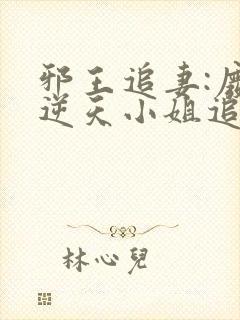 邪王追妻:废
逆天小姐追
林心兒